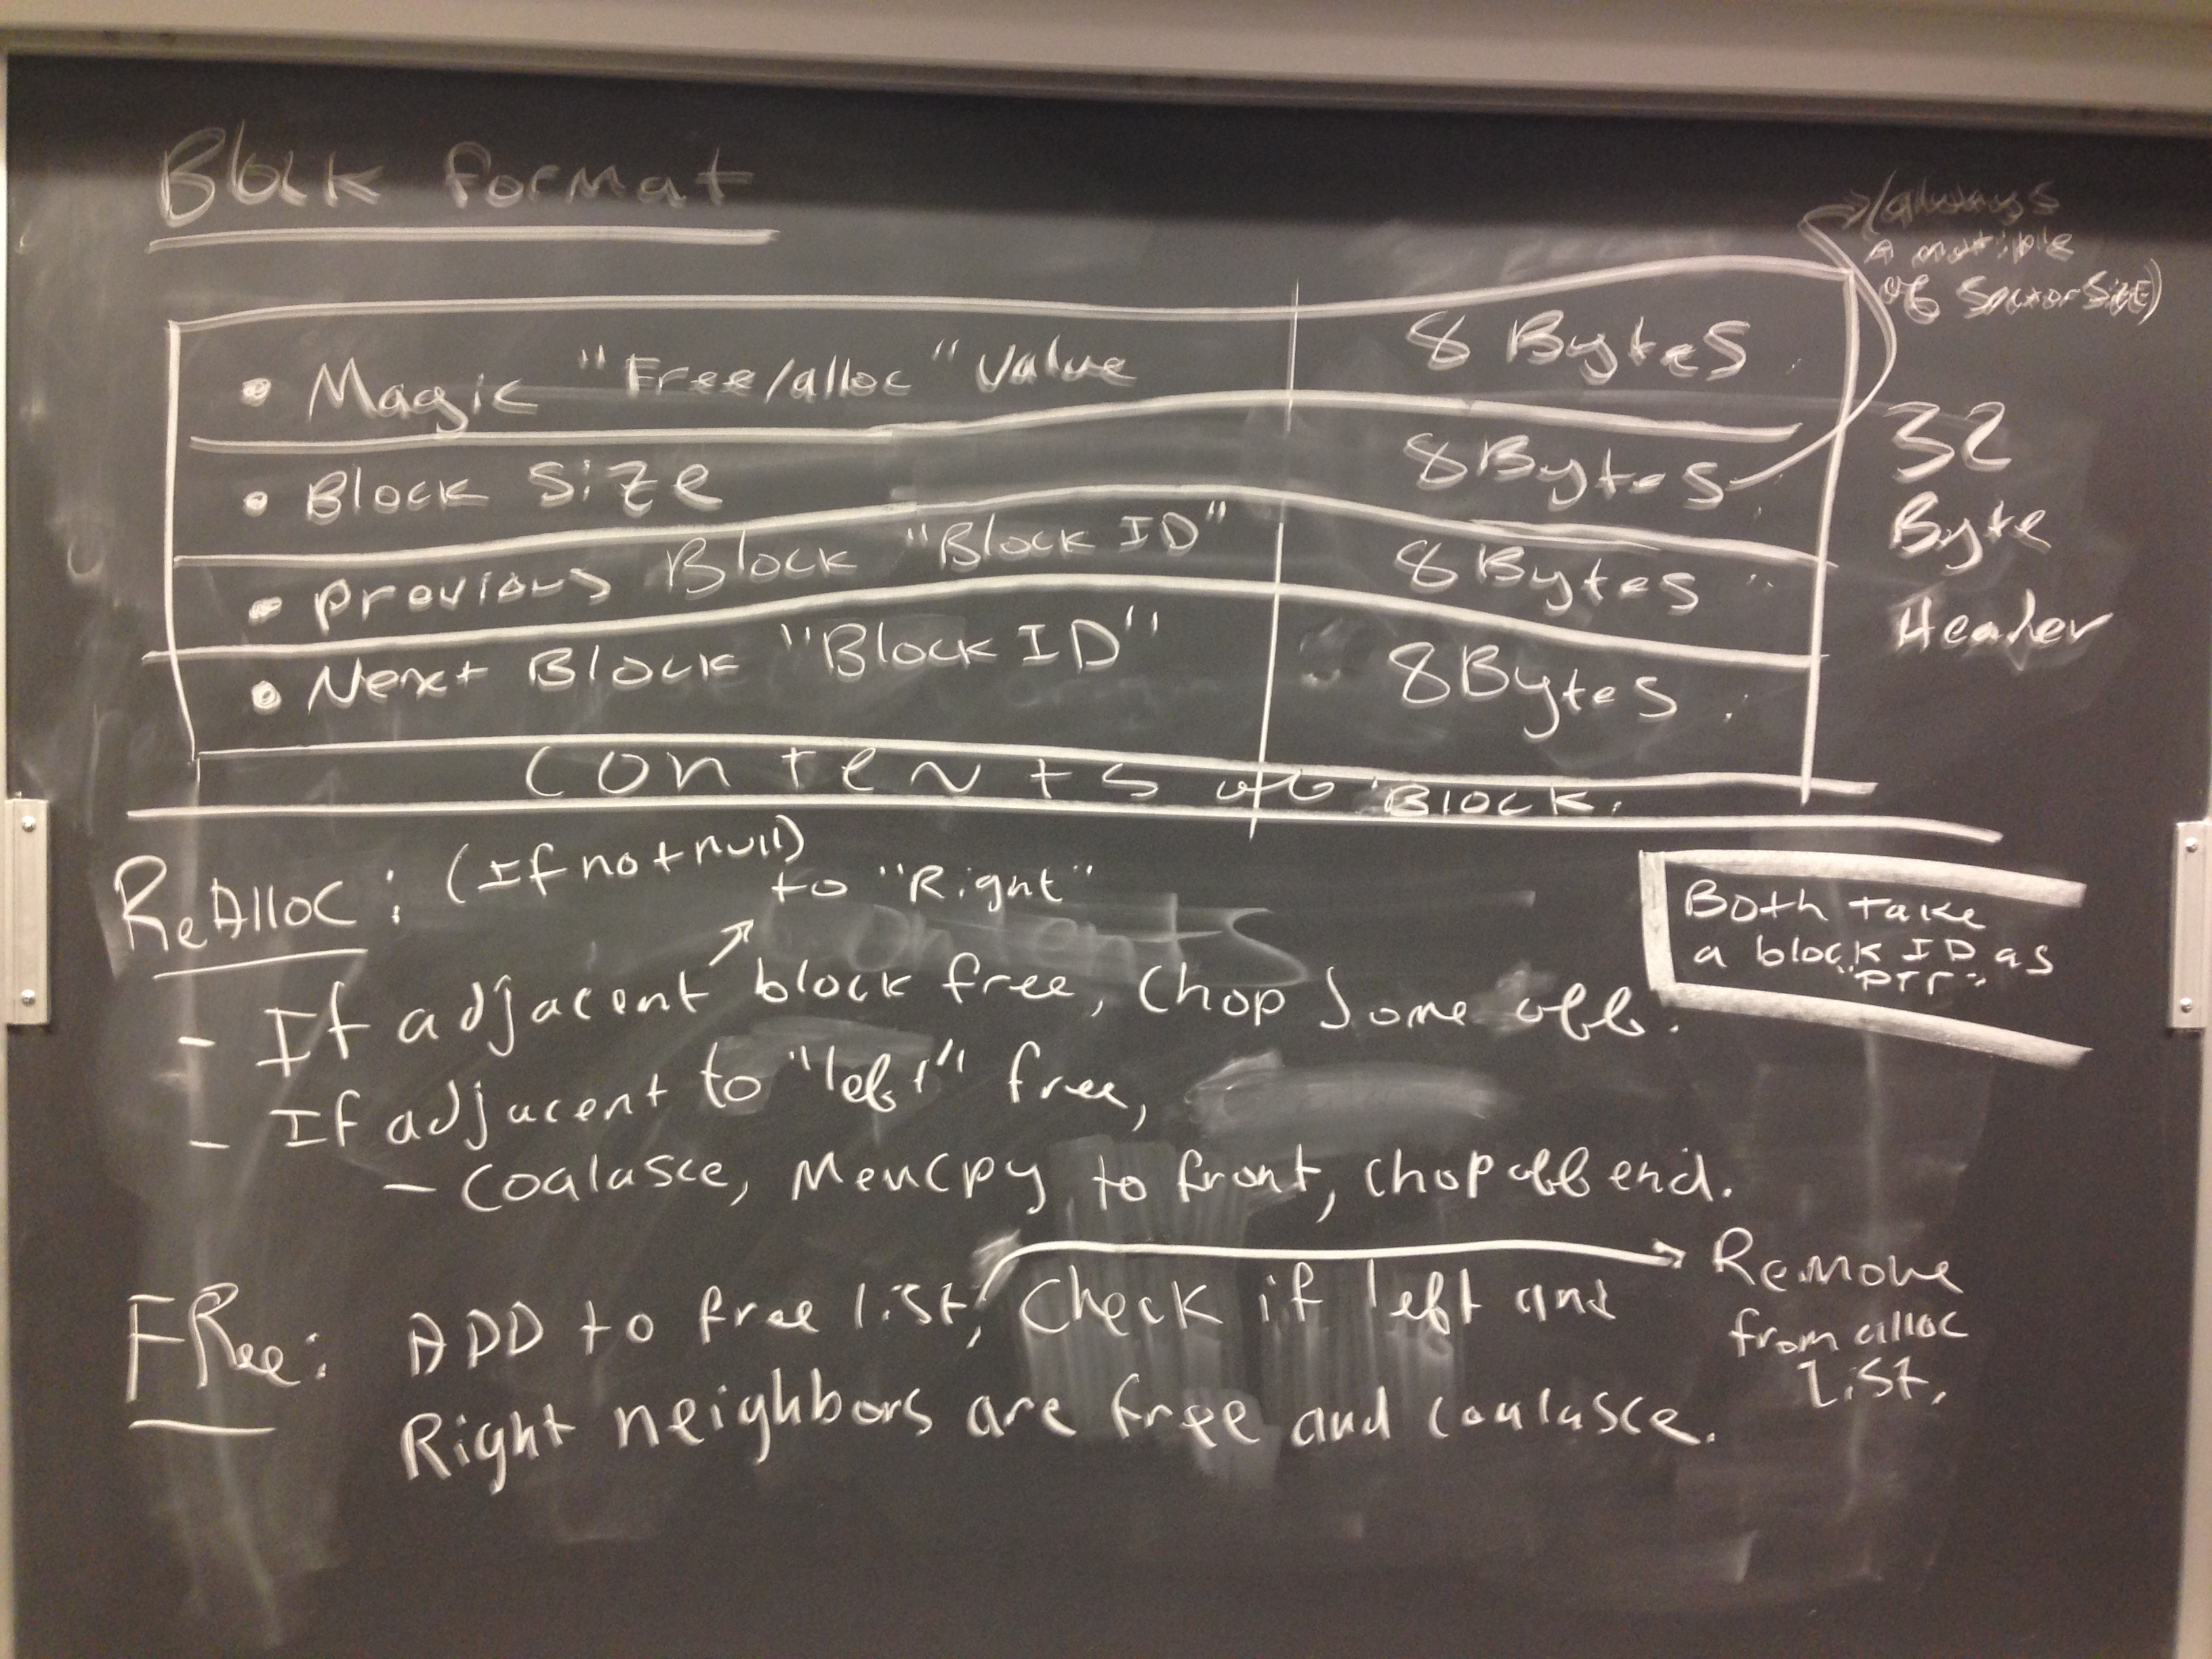 Block format
(always
A multiple
of SectorSize)
• Magic "Free/alloc" Value 8 Bytes
• Block Size 8 Bytes
• Previous Block "Block ID" 8 Bytes
• Next Block "Block ID" 8 Bytes
32
Byte
Header
Contents of Block.
ReAlloc: (If not null)
to "Right"
- If adjacent block free, Chop Some off.
- If adjacent to "left" free,
- Coalasce, Memcpy to front, chop off end.
Both take
a block ID as
"ptr"
FRee: ADD to free list, Check if left and
Right neighbors are free and coalasce.
Remove
from alloc
list.